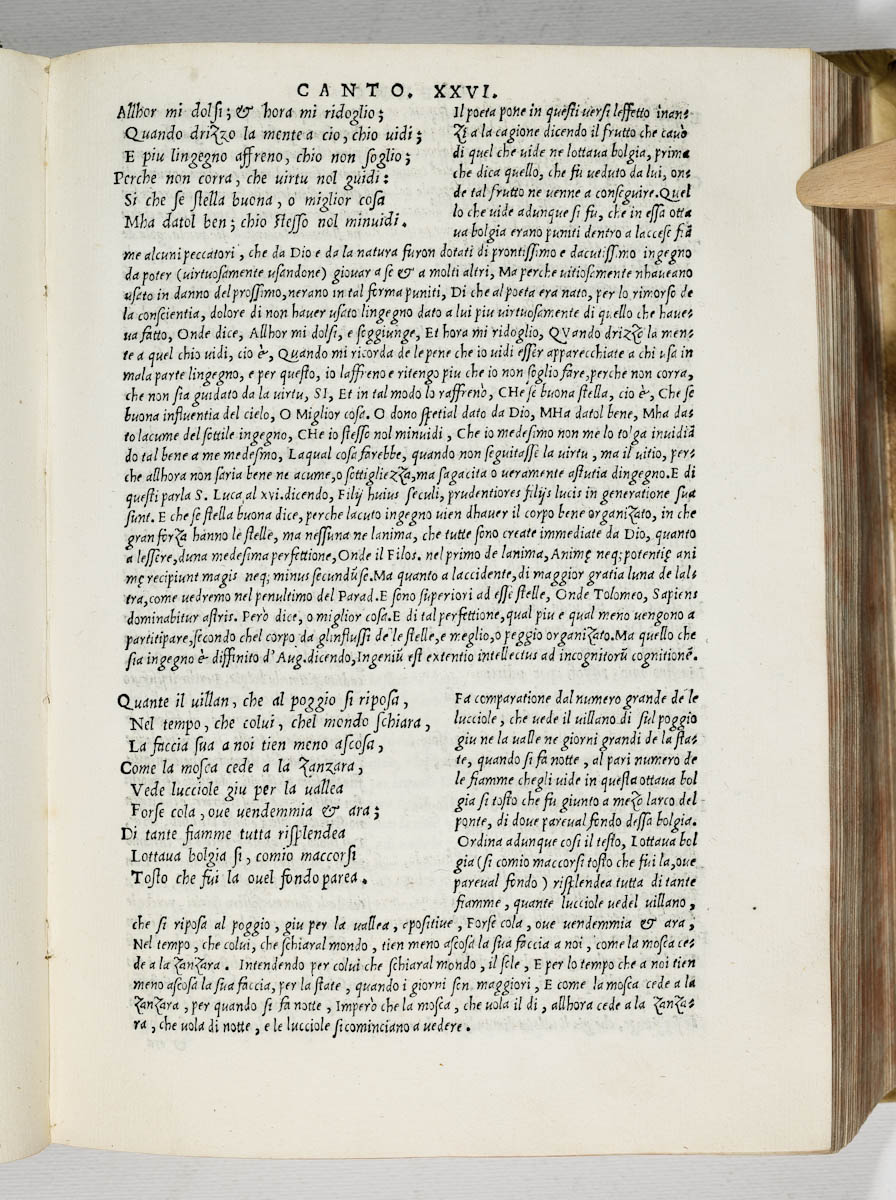 CANTO. XXVI.
Allhor mi dolsi; & hora mi ridoglio;
Quando drizzo la mente a cio, chio uidi;
E piu lingegno affreno, chio non soglio;
Perche non corra, che uirtu nol guidi:
Si che se stella buona, o miglior cosa
Mha datol ben; chio stesso nol minuidi.
Il poeta pone in questi uersi leffetto inan-
zi a la cagione dicendo il frutto che cauò
di quel che uide ne lottaua bolgia, prima
che dica quello, che fu ueduto da lui, on-
de tal frutto ne uenne a conseguire. Quel
lo che uide adunque si fu, che in essa otta
ua bolgia erano puniti dentro a laccese fiā
me alcuni peccatori, che da Dio e da la natura furon dotati di prontissimo e dacutissimo ingegno
da poter (uirtuosamente usandone) giouar a se & a molti altri, Ma perche uitiosamente nhaueano
usato in danno del prossimo, nerano in tal forma puniti, Di che al poeta era nato, per lo rimorso de
la conscientia, dolore di non hauer usato lingegno dato a lui piu uirtuosamente di quello che haue-
ua fatto, Onde dice, Allhor mi dolsi, e soggiunge, Et hora mi ridoglio, QVando drizzo la men-
te a quel chio uidi, cio è, Quando mi ricorda de le pene che io uidi esser apparecchiate a chi usa in
mala parte lingegno, e per questo, io laffreno e ritengo piu che io non soglio fare, perche non corra,
che non sia guidato da la uirtu, SI, Et in tal modo lo raffreno, CHe se buona stella, cio è, Che se
buona influentia del cielo, O Miglior cosa. O dono spetial dato da Dio, MHa datol bene, Mha da-
to lacume del sottile ingegno, CHe io stesso nol minuidi, Che io medesimo non me lo tolga inuidiā
do tal bene a me medesmo, Laqual cosa farebbe, quando non seguitasse la uirtu, ma il uitio, per-
che allhora non saria bene ne acume, o sottigliezza, ma sagacita o ueramente astutia dingegno. E di
questi parla S. Luca, al xvi. dicendo, Filij huius seculi, prudentiores filijs lucis in generatione sua
sunt. E che se stella buona dice, perche lacuto ingegno uien dhauer il corpo bene organizato, in che
gran forza hanno le stelle, ma nessuna ne lanima, che tutte sono create immediate da Dio, quanto
a lessere, duna medesima perfettione, Onde il Filos. nel primo de lanima, Animę neq; potentię ani
mę recipiunt magis neq; minus secundū se. Ma quanto a laccidente, di maggior gratia luna de lal-
tra, come uedremo nel penultimo del Parad. E sono superiori ad esse stelle, Onde Tolomeo, Sapiens
dominabitur astris. Però dice, o miglior cosa. E di tal perfettione, qual piu e qual meno uengono a
partitipare, secondo chel corpo da glinflussi de le stelle, e meglio, o peggio organizato. Ma quello che
sia ingegno è diffinito d'Aug. dicendo, Ingeniū est extentio intellectus ad incognitorū cognitionē.
Quante il uillan, che al poggio si riposa,
Nel tempo, che colui, chel mondo schiara,
La faccia sua a noi tien meno ascosa,
Come la mosca cede a la zanzara,
Vede lucciole giu per la uallea
Forse cola, oue uendemmia & ara;
Di tante fiamme tutta risplendea
Lottaua bolgia si, comio maccorsi
Tosto che fui la ouel fondo parea.
Fa comparatione dal numero grande de le
lucciole, che uede il uillano di sul poggio
giu ne la ualle ne giorni grandi de la sta-
te, quando si fa notte, al pari numero de
le fiamme chegli uide in questa ottaua bol
gia si tosto che fu giunto a mezo larco del
ponte, di doue pareual fondo dessa bolgia.
Ordina adunque cosi il testo, Lottaua bol
gia (si comio maccorsi tosto che fui la, oue
pareual fondo) risplendea tutta di tante
fiamme, quante lucciole uedel uillano,
che si riposa al poggio, giu per la uallea, opositiue, Forse cola, oue uendemmia & ara,
Nel tempo, che colui, che schiaral mondo, tien meno ascosa la sua faccia a noi, come la mosca ce-
de a la zanzara. Intendendo per colui che schiaral mondo, il sole, E per lo tempo che a noi tien
meno ascosa la sua faccia, per la state, quando i giorni son maggiori, E come la mosca cede a la
zanzara, per quando si fa notte, Imperò che la mosca, che uola il di, allhora cede a la zanza-
ra, che uola di notte, e le lucciole si cominciano a uedere.